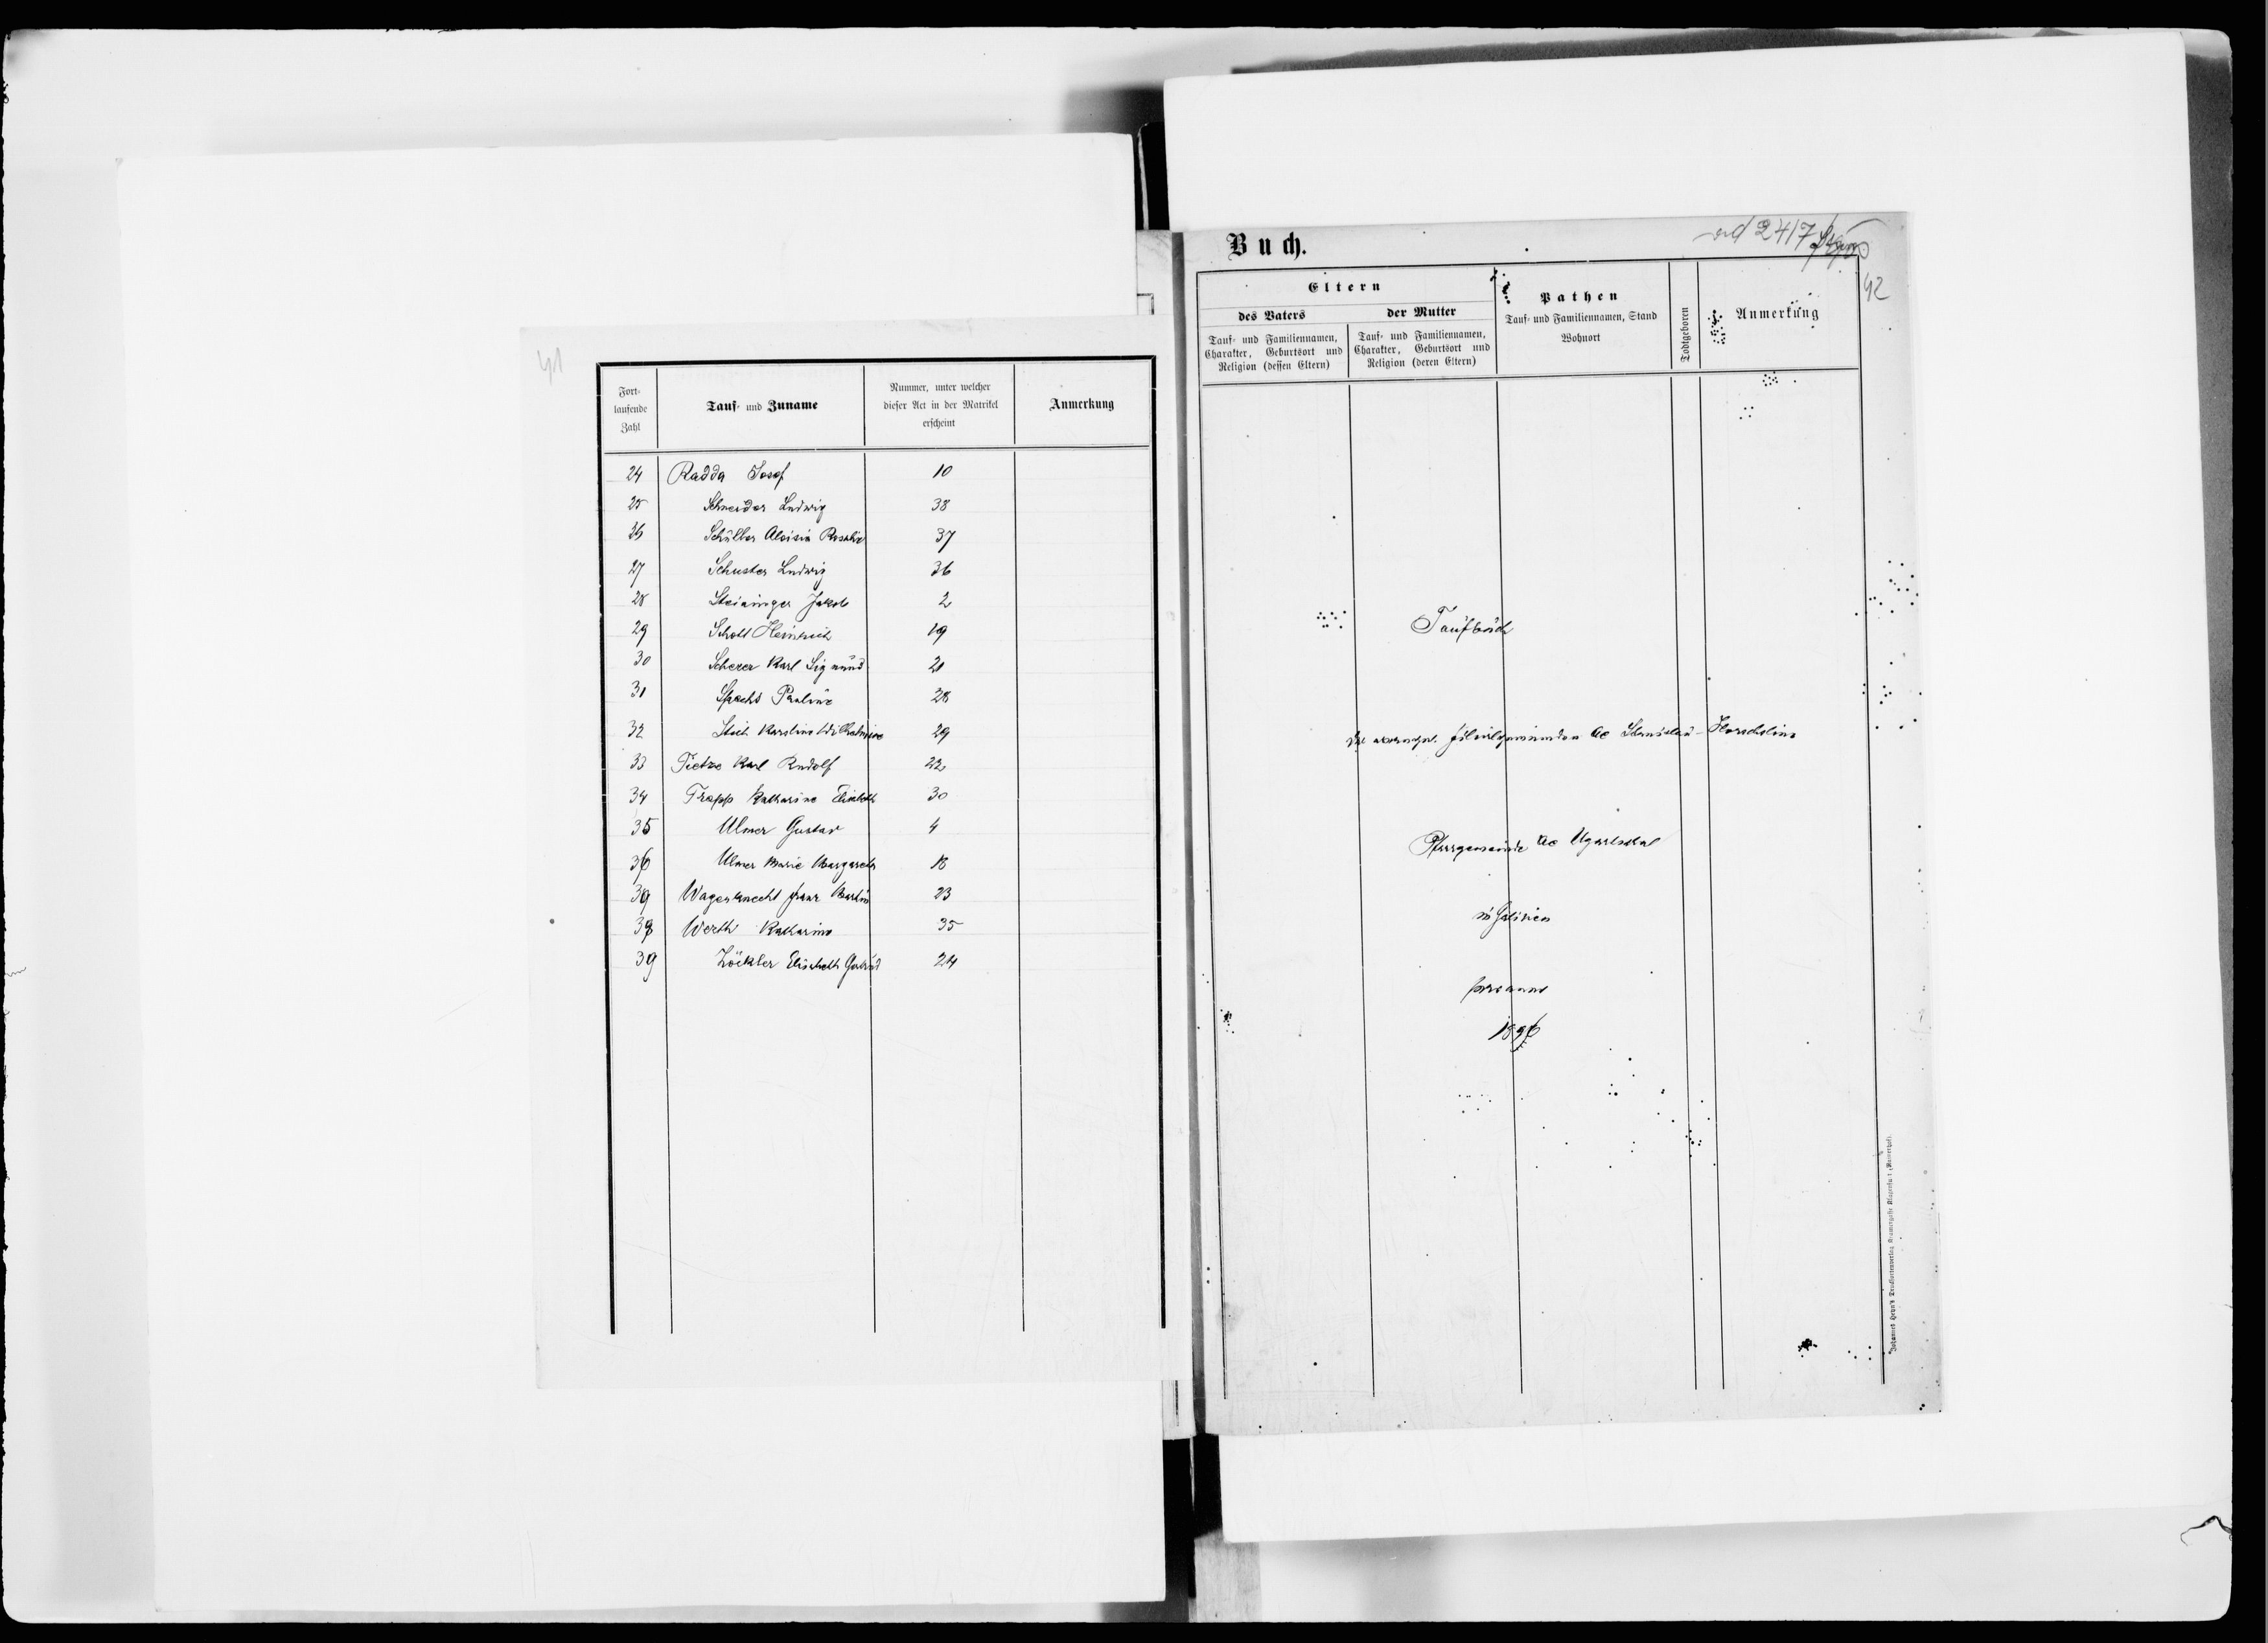 41
Fort-
laufende
Zahl
Tauf- und Zuname
Nummer, unter welcher
dieser Act in der Matrikel
erscheint
Anmerkung
24 Radda Josef 10
25 Schneider Ludwig 38
26 Schüller Aloisia Rosalie 37
27 Schuster Ludwig 36
28 Steininger Jakob 2
29 Scholl Heinrich 19
30 Scherer Karl Sigmund 21
31 Specht Pauline 28
32 Karoline Wilhelmine 29
33 Tietze Karl Rudolf 22
34 Trapp Katharine Elisabeth 30
35 Ulmer Gustav 4
36 Ulmer Marie Margareth 18
39 Wagenknecht Franz Martin 23
38 Werth Katharina 35
39 Zöckler Elisabeth Gertrud 24
Buch.
ad 2417
42
Eltern
des Vaters
Tauf- und Familiennamen,
Charakter, Geburtsort und
Religion (dessen Eltern)
der Mutter
Tauf- und Familiennamen,
Charakter, Geburtsort und
Religion (deren Eltern)
Pathen
Tauf- und Familiennamen, Stand
Wohnort
Todtgeboren
Anmerkung
Taufbuch
der evangel. Filialgemeinden AC Stanislau -
Pfarrgemeinde AC Ugartsthal
in Galizien
pro anno
1896